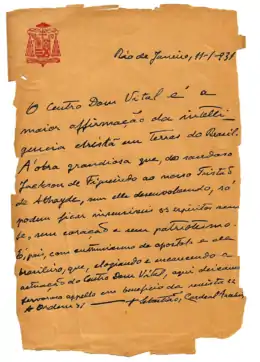 Rio de Janeiro, 11-1-931
O Centro Dom Vital é a
maior affirmação da intelli-
gencia christã em terras do Brasil.
A' obra grandiosa que, do saudoso
Jackson de Figueiredo ao nosso Tristão
de Athayde, vem elle desenvolvendo, só
podem ficar insensiveis os espiritos sem
fé, sem coração e sem patriotismo.
E', pois, com enthusiasmo de apostolo e de
brasileiro, que, elogiando e
actuação do Centro Dom Vital, aqui deixamos
appello em beneficio da revista
A Ordem
+ Sebastião, Cardeal